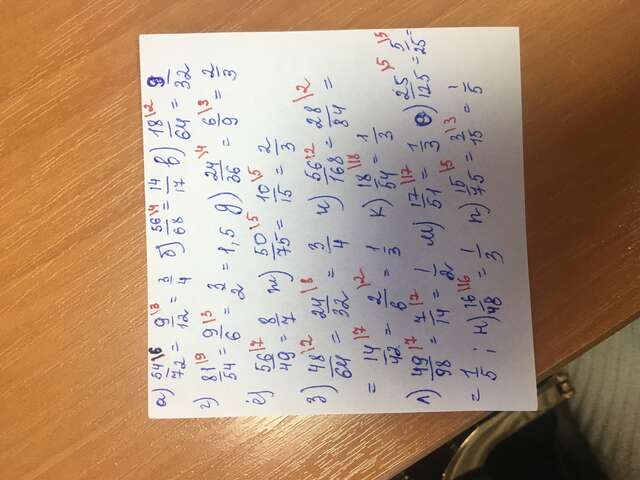 а) 54/72 \6 = 9/12 \3 = 3/4 б) 56/68 \4 = 14/17 в) 18/64 \2 = 9/32
г) 81/54 \9 = 9/6 \3 = 3/2 = 1,5 д) 24/36 \4 = 6/9 \3 = 2/3
е) 56/49 \7 = 8/7 ж) 50/75 \5 = 10/15 \5 = 2/3
з) 48/64 \2 = 24/32 \8 = 3/4 и) 56/168 \2 = 28/84 \2 =
= 14/42 \7 = 2/6 \2 = 1/3 к) 18/54 \18 = 1/3
л) 49/98 \7 = 7/14 \7 = 1/2 м) 17/51 \17 = 1/3 о) 25/125 \5 = 5/25 \5 =
= 1/5 ; н) 16/48 \16 = 1/3 п) 15/75 \5 = 3/15 \3 = 1/5